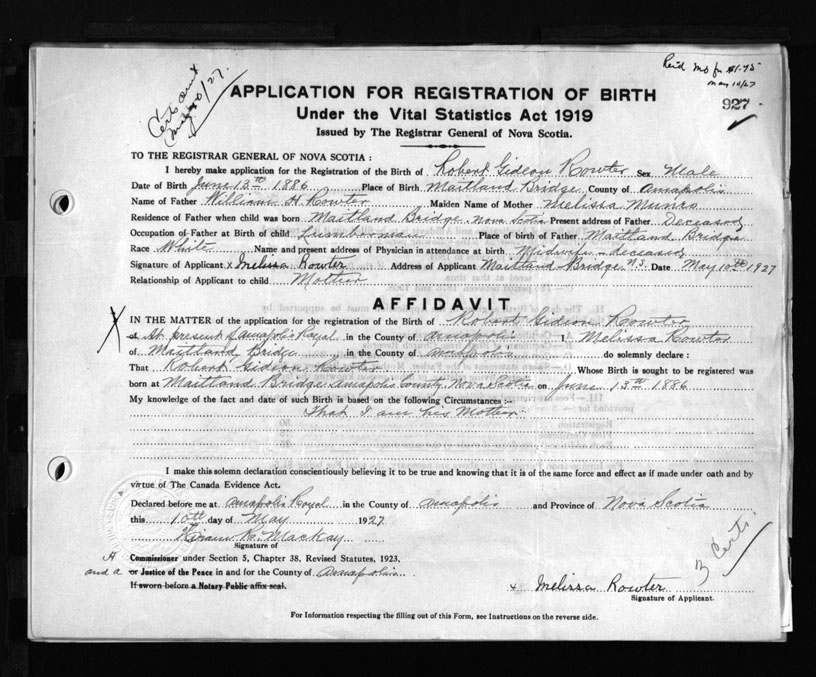 Certs sent
May 10/27.
Rec'd Mo for $1.75
May 10/27
927
APPLICATION FOR REGISTRATION OF BIRTH
Under the Vital Statistics Act 1919
Issued by The Registrar General of Nova Scotia.
TO THE REGISTRAR GENERAL OF NOVA SCOTIA :
I hereby make application for the Registration of the Birth of Robert Gideon Rowter Sex Male
Date of Birth June 13th 1886 Place of Birth Maitland Bridge County of Annapolis
Name of Father William H Rowter Maiden Name of Mother Melissa Munro
Residence of Father when child was born Maitland Bridge Nova Scotia Present address of Father Deceased
Occupation of Father at Birth of child Lumberman Place of birth of Father Maitland Bridge
Race White Name and present address of Physician in attendance at birth Midwife - deceased
Signature of Applicant x Melissa Rowter Address of Applicant Maitland Bridge N.S. Date May 10th 1927
Relationship of Applicant to child Mother
AFFIDAVIT
X IN THE MATTER of the application for the registration of the Birth of Robert Gideon Rowter
of At present of Annapolis Royal in the County of Annapolis I Melissa Rowter
of Maitland Bridge in the County of Annapolis do solemnly declare :
That Robert Gideon Rowter Whose Birth is sought to be registered was
born at Maitland Bridge Annapolis County, Nova Scotia on June 13th 1886
My knowledge of the fact and date of such Birth is based on the following Circumstances :-
That I am his Mother
I make this solemn declaration conscientiously believing it to be true and knowing that it is of the same force and effect as if made under oath and by
virtue of The Canada Evidence Act.
Declared before me at Annapolis Royal in the County of Annapolis and Province of Nova Scotia
this 10th day of May 1927
Hiram C. Mackay
Signature of
A Commissioner under Section 5, Chapter 38, Revised Statutes, 1923.
and a or Justice of the Peace in and for the County of Annapolis
If sworn before a Notary Public affix seal.
3 Certs
x Melissa Rowter
Signature of Applicant.
For Information respecting the filling out of this Form, see Instructions on the reverse side.